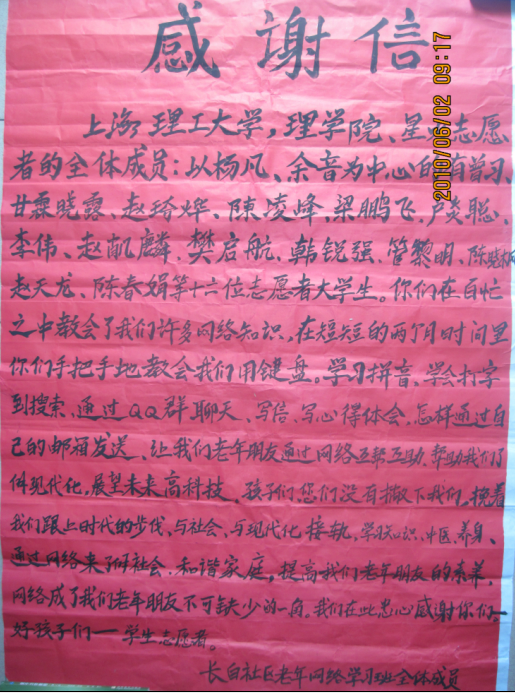 感谢信
上海理工大学，理学院、星 志愿
者的全体成员、以杨凡、余音为中心的有曾习、
甘霖晓露、赵琦烨、陈凌峰、梁鹏飞、卢炎聪、
李伟、赵 麟、樊启航、韩锐强、管黎明、陈
赵天龙、陈春娟等十六位志愿者大学生。你们在百忙
之中教会了我们许多网络知识，在短短的两个月时间里
你们手把手地教会我们用键盘。学习拼音、学会打字
到搜索、通过QQ群聊天、写信、写心得体会，怎样通过自
己的邮箱发送、让我们老年朋友通过网络互帮互助、帮助我们了
解现代化，展望未来高科技、孩子们您们没有撇下我们，挽着
我们跟上时代的步伐、与社会、与现代化接轨，学知识、中医、养身、
通过网络来了解社会、和谐家庭，提高我们老年朋友的素养，
网络成了我们老年朋友不可缺少的一角。我们在此忠心感谢你们，
好孩子们一学生志愿者。
长白社区老年网络学习班全体成员
2010/06/02 09:17